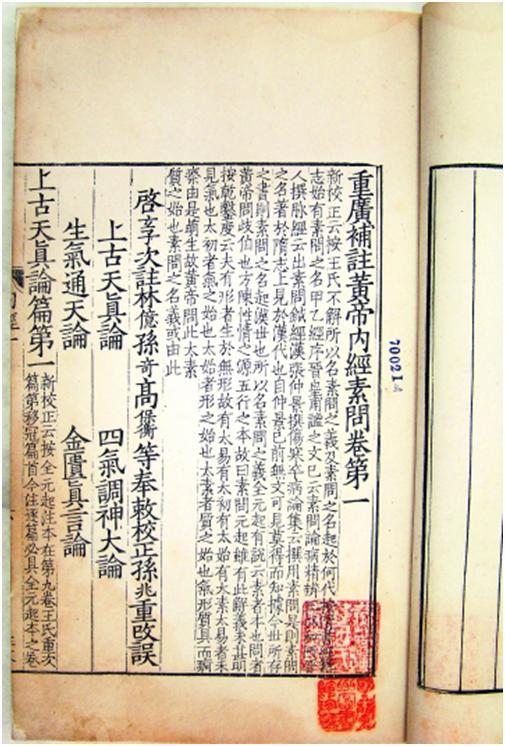 重廣補註黃帝内經素問卷第一
新校正云按王氏不解所以名素問之義及素問之名起於何代按隋書經籍
志始有素問之名甲乙經序晉皇甫謐之文已云素問論病精辨王叔和西晉
人撰脉經云出素問鍼經漢張仲景撰傷寒卒病論集云撰用素問是則素問
之名著於隋志上見於漢代也自仲景已前無文可見莫得而知據今世所存
之書則素問之名起漢世也所以名素問之義全元起有說云素者本也問者
黃帝問歧伯也方陳性情之源五行之本故曰素問元起雖有此解義未甚明
按乾鑿度云夫有形者生於無形故有太易有太初有太始有太素太易者未
見氣也太初者氣之始也太始者形之始也太素者質之始也氣形質具而痾
瘵由是萌生故黃帝問此太素
質之始也素問之名義或由此
啓玄子次註林億孫奇高保衡等奉敕校正孫兆重改誤
上古天真論 四氣調神大論
生氣通天論 金匱真言論
上古天真論篇第一
新校正云按全元起注本在第九卷王氏重次
篇第移冠篇首今注逐篇必具全元起本之卷
700214